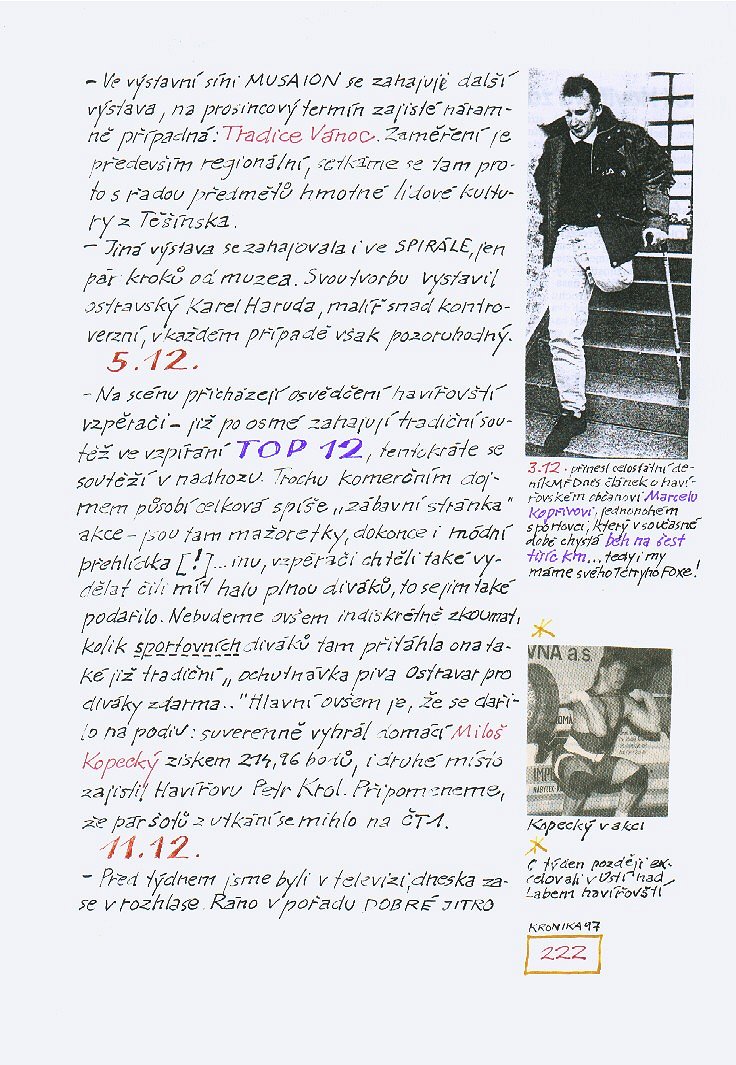 - Ve výstavní síni MUSAION se zahajuje další
výstava, na prosincový termín zajisté náram-
ně případná: Tradice Vánoc. Zaměření je
především regionální, setkáme se tam pro-
to s řadou předmětů hmotné lidové kultu-
ry z Těšínska.
- Jiná výstava se zahajovala i ve SPIRÁLE, jen
pár kroků od muzea. Svou tvorbu vystavil
ostravský Karel Haruda, malíř snad kontro-
verzní, v každém případě však pozoruhodný.
5.12.
- Na scénu přicházejí osvědčení havířovští
vzpěrači - již po osmé zahajují tradiční sou-
těž ve vzpírání TOP 12, tentokráte se
soutěží v nadhozu. Trochu komerčním doj-
mem působí celková spíše „zábavní stránka"
akce - jsou tam mažoretky, dokonce i módní
přehlídka [!]... inu, vzpěrači chtěli také vy-
dělat čili mít halu plnou diváků, to se jim také
podařilo. Nebudeme ovšem indiskrétně zkoumat,
kolik sportovních diváků tam přitáhla ona ta-
ké již tradiční „ochutnávka piva Ostravar pro
diváky zdarma.." Hlavní ovšem je, že se daři-
lo na podiu: suverenně vyhrál domácí Miloš
Kopecký ziskem 214,96 bodů, i druhé místo
zajistil Havířovu Petr Krol. Připomeneme,
že pár šotů z utkání se mihlo na ČT1.
11.12.
- Před týdnem jsme byli v televizi, dneska za-
se v rozhlase. Ráno v pořadu DOBRÉ JITRO
3.12. přinesl celostátní de-
ník MF Dnes článek o haví-
řovském občanovi Marcelu
Kopřivovi, jednonohém
sportovci, který v současné
době chystá běh na šest
tisíc km... tedy i my
máme svého Terryho Foxe!
VNA a.s.
Kopecký v akci
O týden později ex-
celovali v Ústí nad
Labem havířovští
KRONIKA 97
222